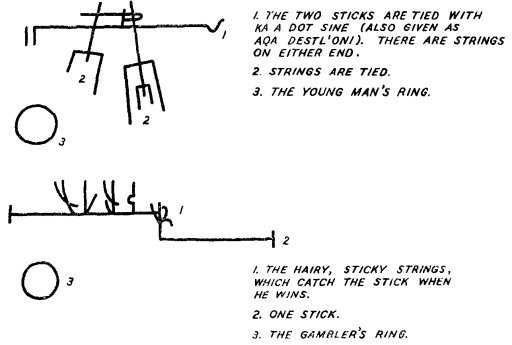 1. THE TWO STICKS ARE TIED WITH
KA A DOT SINE (ALSO GIVEN AS
AQA DESTL'ONI). THERE ARE STRINGS
ON EITHER END.
2. STRINGS ARE TIED.
3. THE YOUNG MAN'S RING.
1
2
2
3
1
2
3
1. THE HAIRY, STICKY STRINGS,
WHICH CATCH THE STICK WHEN
HE WINS.
2. ONE STICK.
3. THE GAMBLER'S RING.